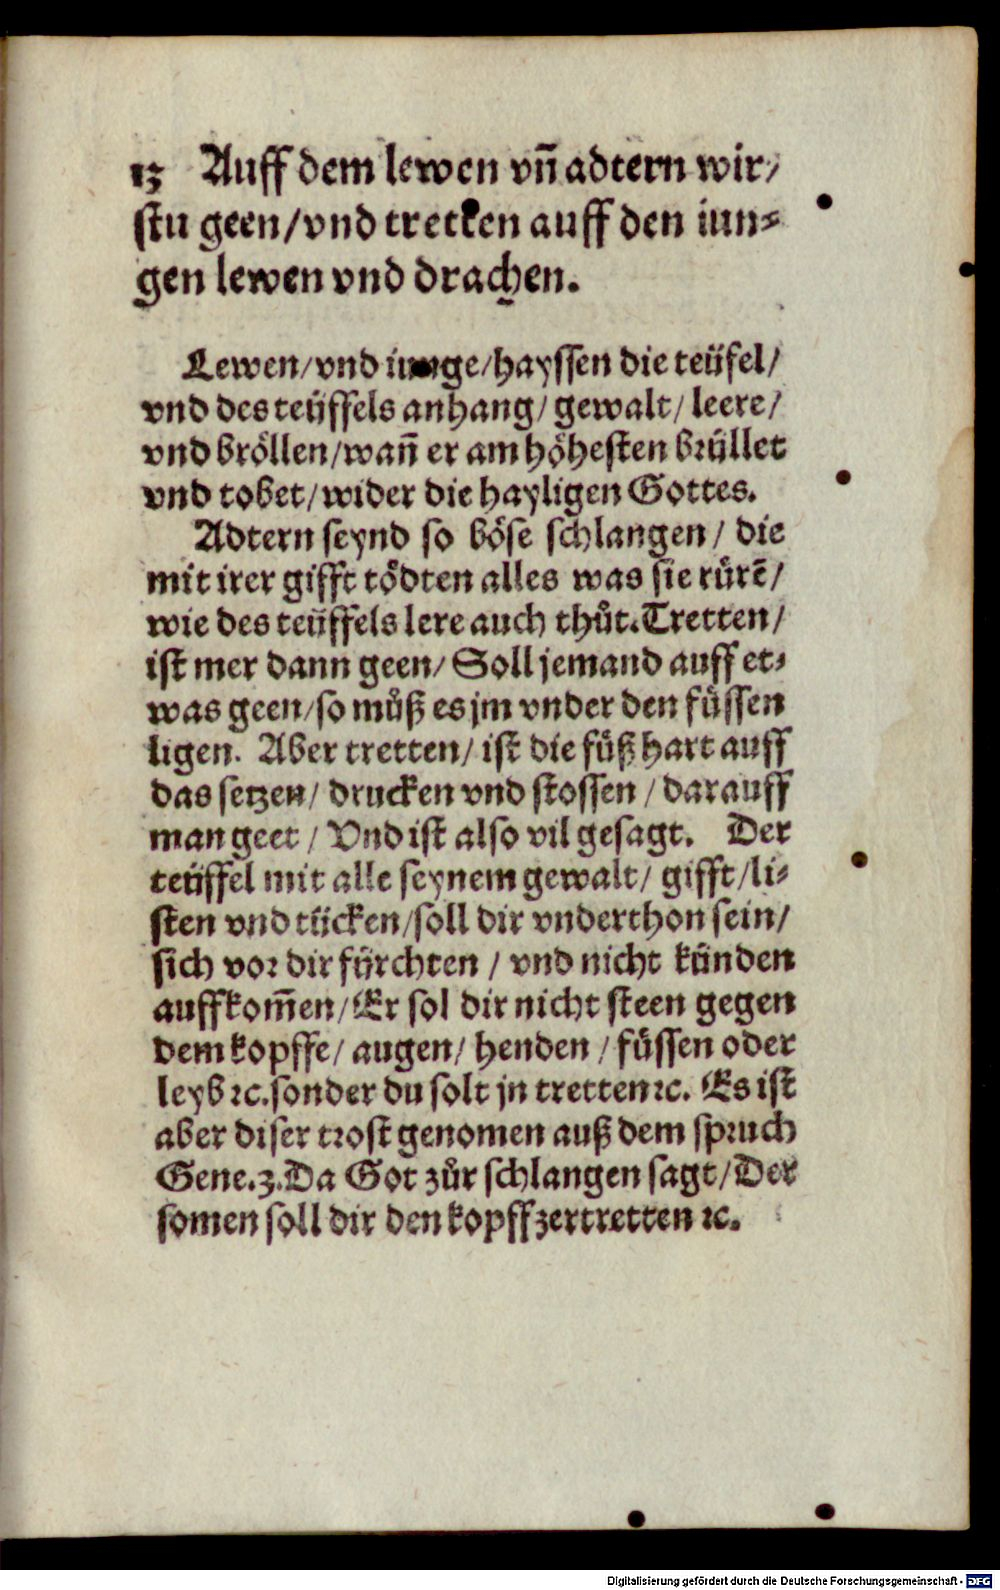 13 Auff dem lewen vn̄ adtern wir/
stu geen/vnd tretten auff den iun⸗
gen lewen vnd drachen.
Lewen/vnd iunge/hayssen die teüfel/
vnd des teüffels anhang/ gewalt/ leere/
vnd bröllen/wan̄ er am höhesten brüllet
vnd tobet/wider die hayligen Gottes.
Adtern seynd so böse schlangen/ die
mit irer gifft tödten alles was sie rürē/
wie des teüffels lere auch thůt.Tretten/
ist mer dann geen/ Soll jemand auff et⸗
was geen/so můß es jm vnder den füssen
ligen. Aber tretten/ ist die füß hart auff
das setzen/ drucken vnd stossen / darauff
man geet / Vnd ist also vil gesagt. Der
teüffel mit alle seynem gewalt/ gifft/li⸗
sten vnd tücken/soll dir vnderthon sein/
sich vor dir fürchten / vnd nicht künden
auffkom̄en/Er sol dir nicht steen gegen
dem kopffe/ augen/ henden / füssen oder
leyb ꝛc.sonder du solt jn tretten ꝛc. Es ist
aber diser trost genomen auß dem spruch
Gene.3.Da Got zůr schlangen sagt/Der
somen soll dir den kopff zertretten ꝛc.
Digitalisierung gefördert durch die Deutsche Forschungsgemeinschaft - DFG